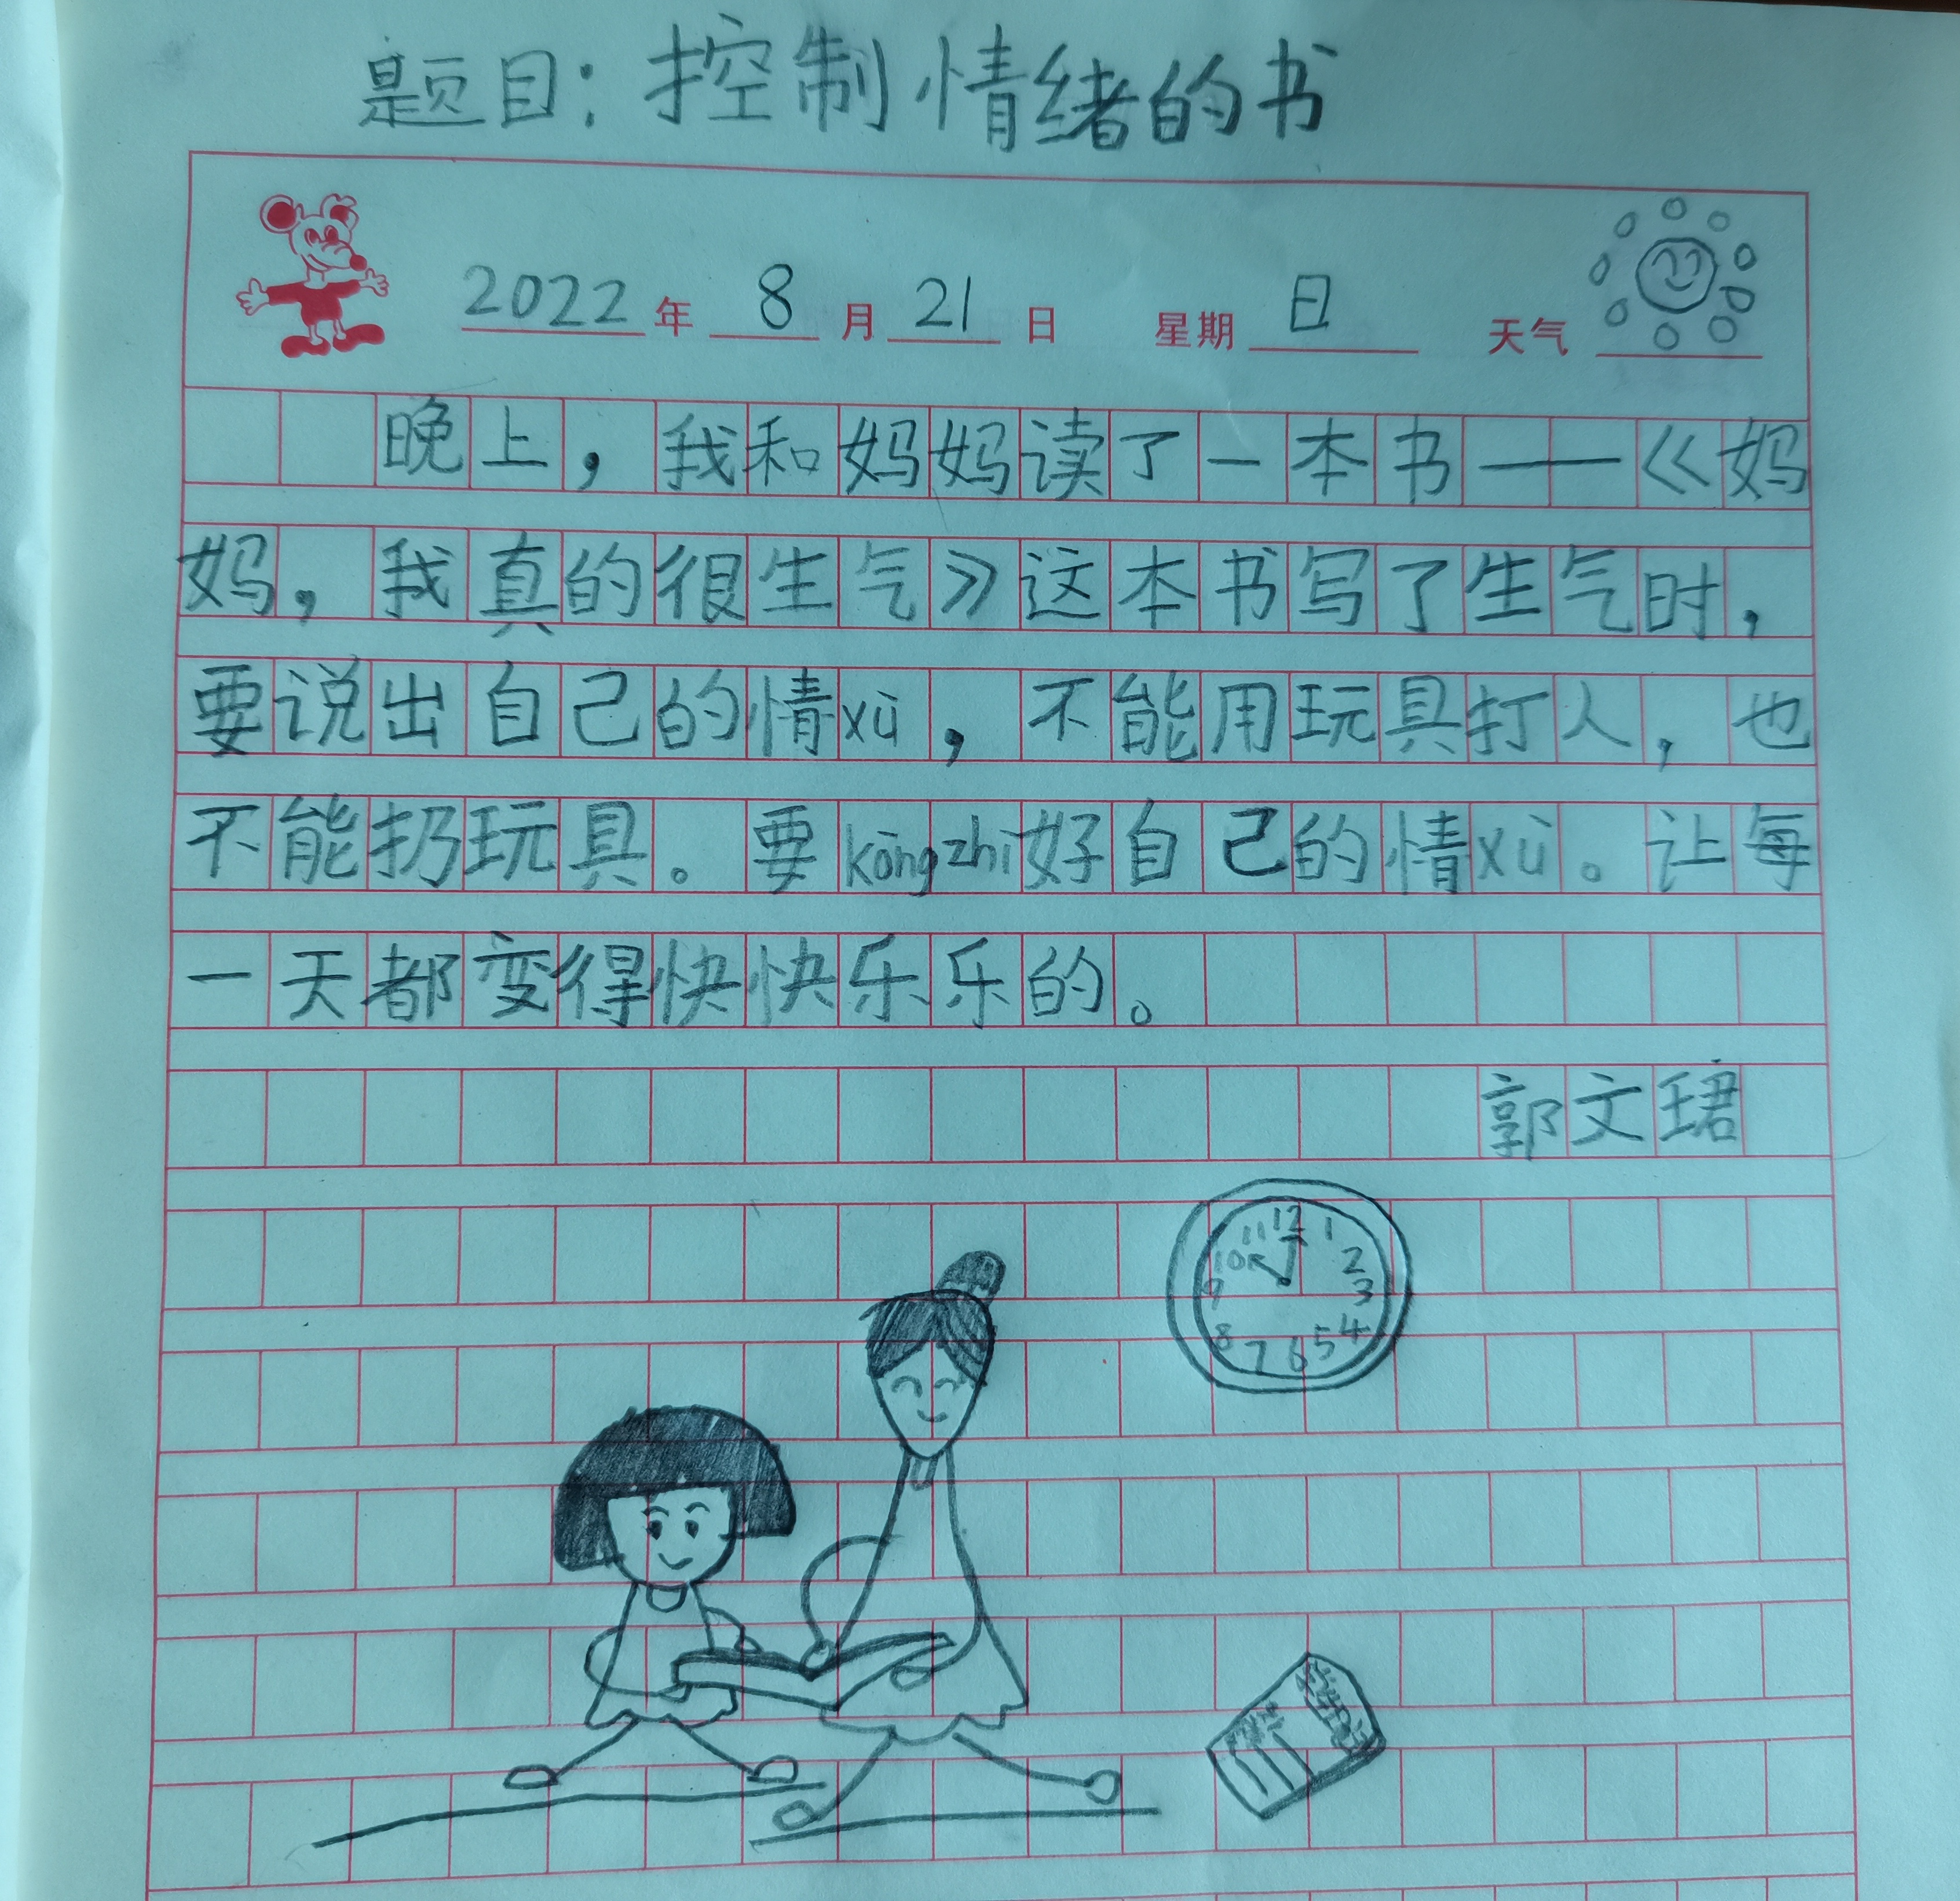 题目：控制情绪的书
2022年 8月21日 星期日 天气
晚上，我和妈妈读了一本书——《妈
妈，我真的很生气》这本书写了生气时，
要说出自己的情xù，不能用玩具打人，也
不能扔玩具。要kòngzhì好自己的情xù。让每
一天都变得快快乐乐的。
郭文珺
11 12 1
10 2
9 3
8 4
7 6 5